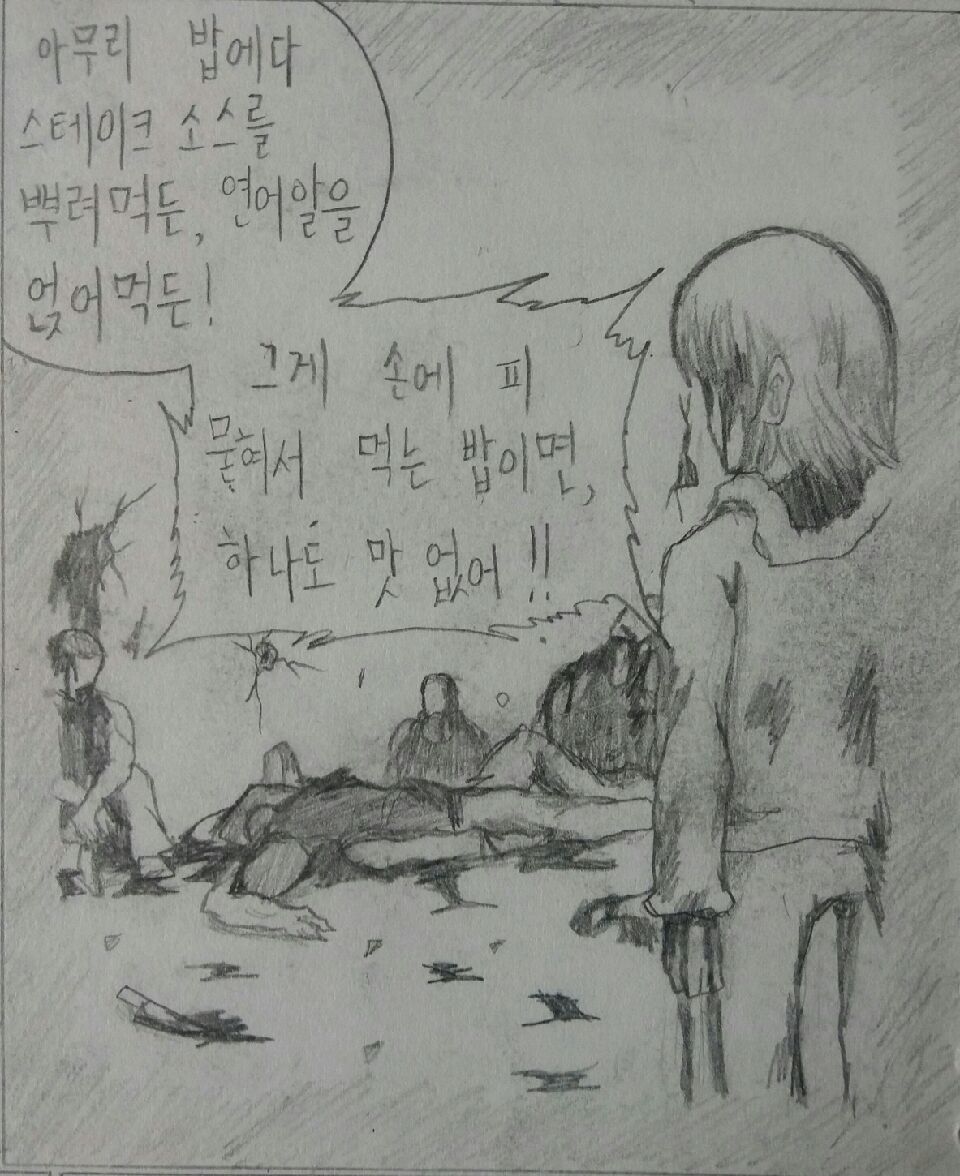 아무리 밥에다
스테이크 소스를
뿌려먹든, 연어알을
얹어먹든!
그게 손에 피
뭍혀서 먹는 밥이면,
하나도 맛 없어!!